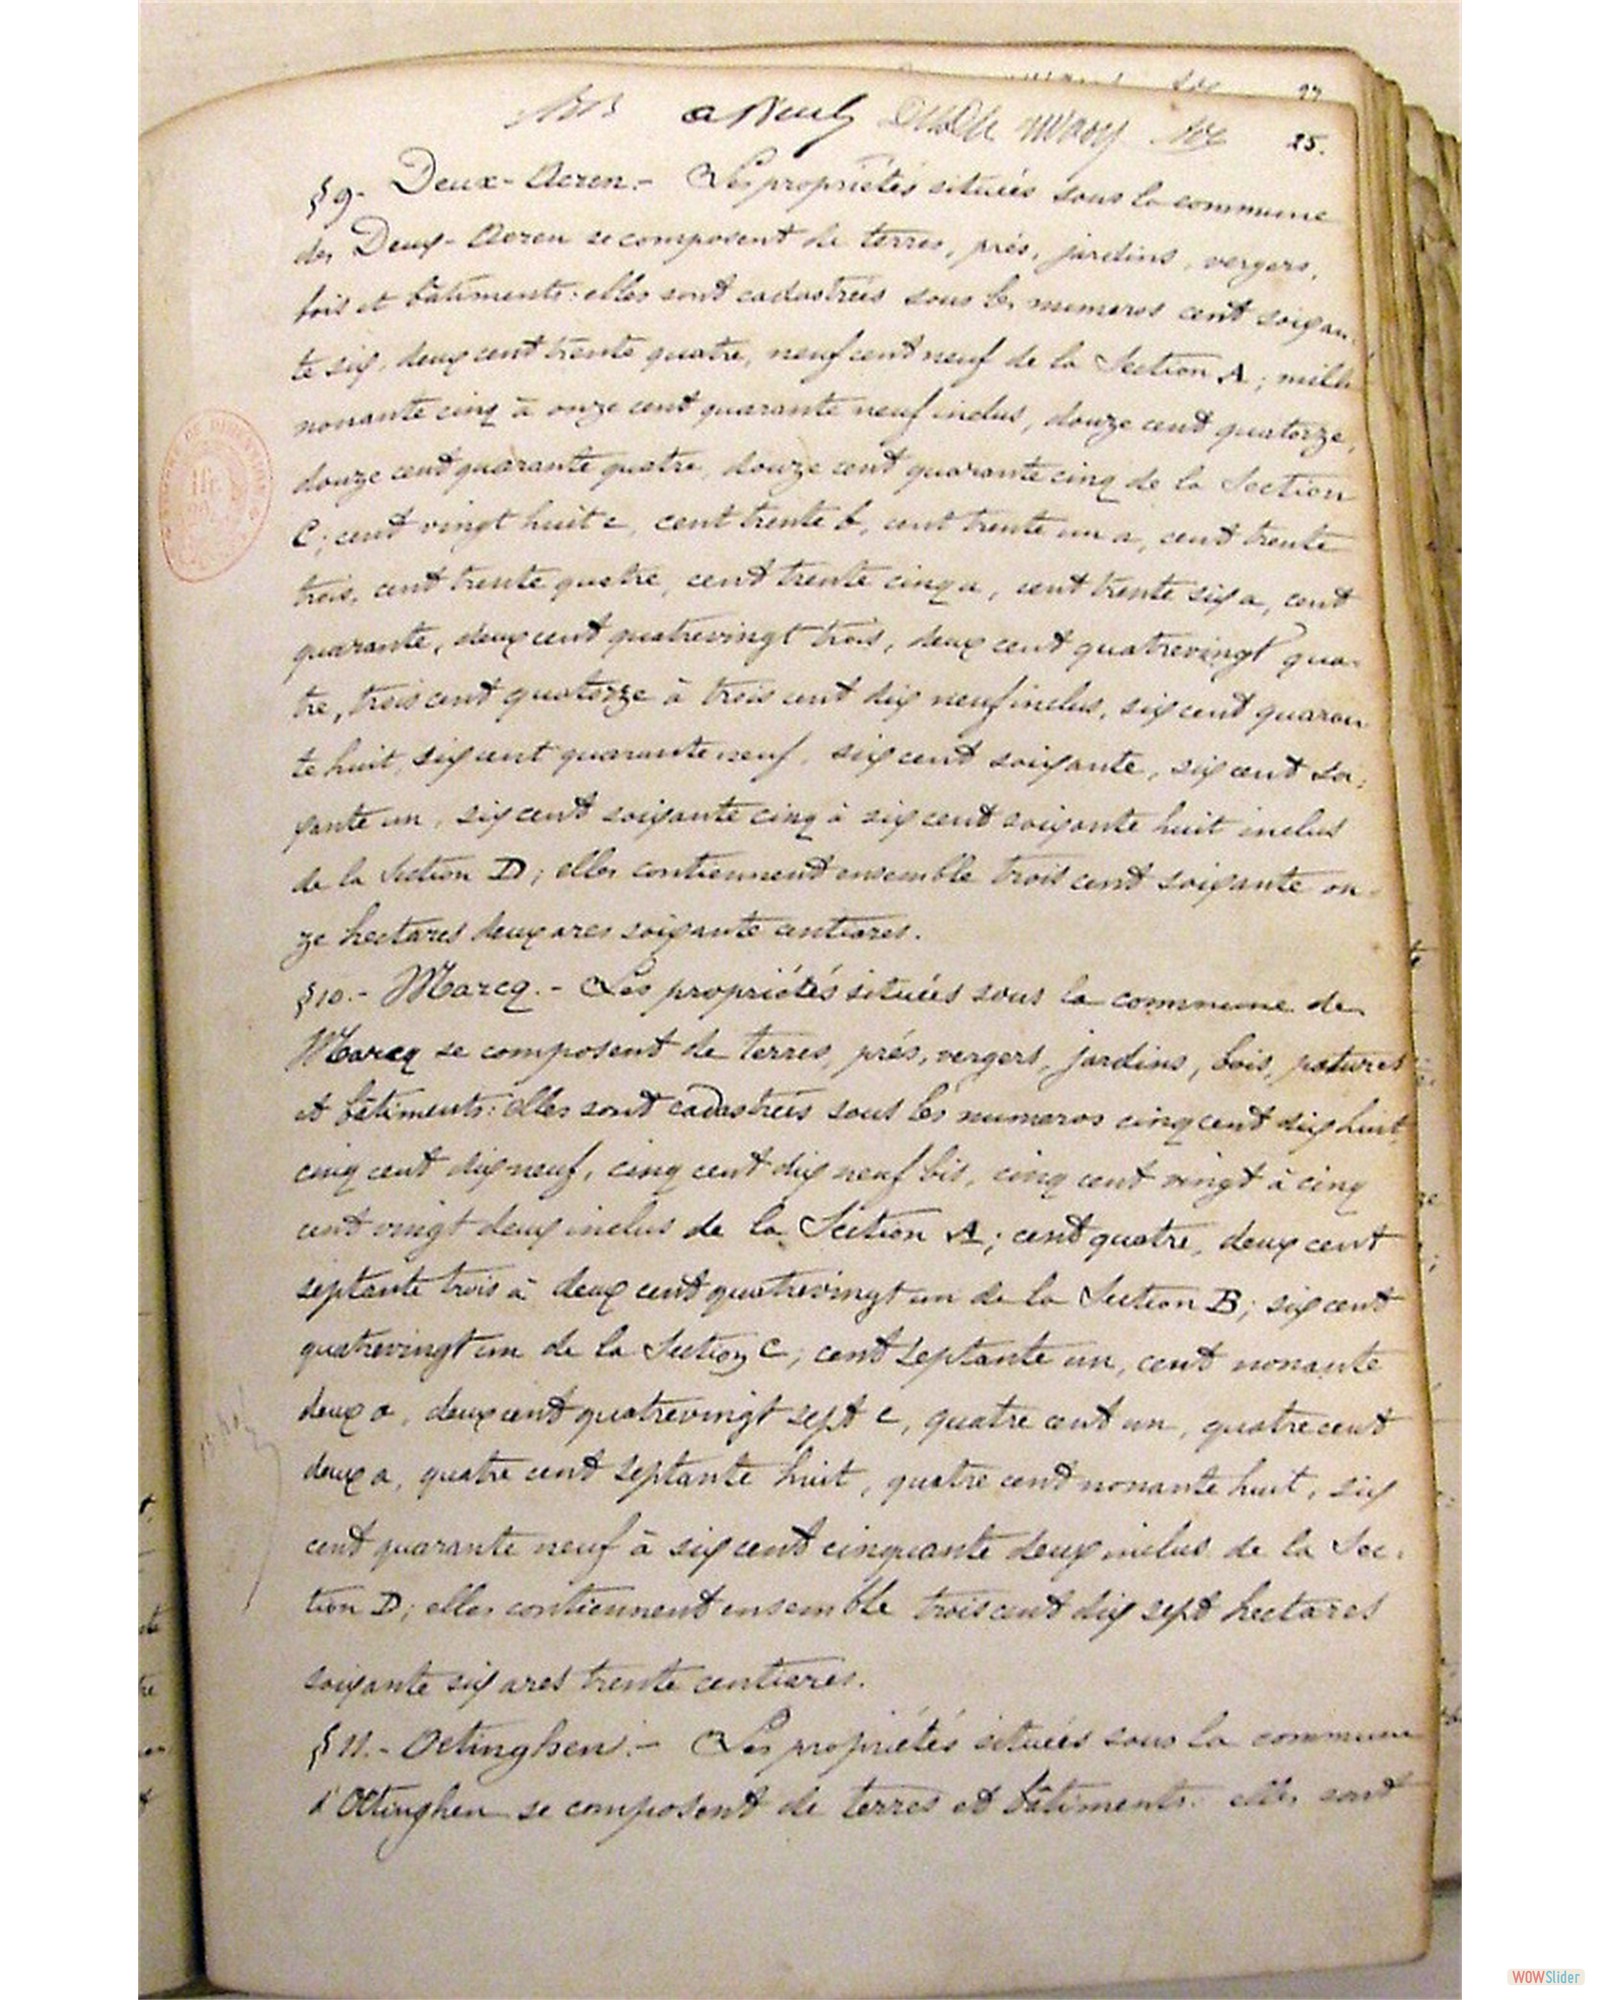 25.
§ 9.- Deux-Acren.- Les propriétés situées sous la commune
des Deux-Acren se composent de terres, prés, jardins, vergers,
bois et bâtiments: elles sont cadastrées sous les numeros cent soixan
te six, deux cent trente quatre, neuf cent neuf de la Section A; mille
nonante cinq à onze cent quarante neuf inclus, douze cent quatorze,
douze cent quarante quatre, douze cent quarante cinq de la Section
C; cent vingt huit c, cent trente b, cent trente un a, cent trente
trois, cent trente quatre, cent trente cinq a, cent trente six a, cent
quarante, deux cent quatrevingt trois, deux cent quatrevingt qua-
tre, trois cent quatorze à trois cent dix neuf inclus, six cent quaran
te huit, six cent quarante neuf, six cent soixante, six cent soi-
xante un, six cent soixante cinq à six cent soixante huit inclus
de la Section D; elles contiennent ensemble trois cent soixante on-
ze hectares deux ares soixante centiares.
§ 10.- Marcq.- Les propriétés situées sous la commune de
Marcq se composent de terres, prés, vergers, jardins, bois, patures
et bâtiments: elles sont cadastrées sous les numeros cinq cent dix huit
cinq cent dix neuf, cinq cent dix neuf bis, cinq cent vingt à cinq
cent vingt deux inclus de la Section A; cent quatre, deux cent
septante trois à deux cent quatrevingt un de la Section B; six cent
quatrevingt un de la Section C; cent septante un, cent nonante
deux a, deux cent quatrevingt sept c, quatre cent un, quatre cent
deux a, quatre cent septante huit, quatre cent nonante huit, six
cent quarante neuf à six cent cinquante deux inclus de la Sec-
tion D; elles contiennent ensemble trois cent dix sept hectares
soixante six ares trente centiares.
§ 11.- Oetinghen.- Les propriétés situées sous la commune
d'Oetinghen se composent de terres et bâtiments: elles sont
WOWSlider